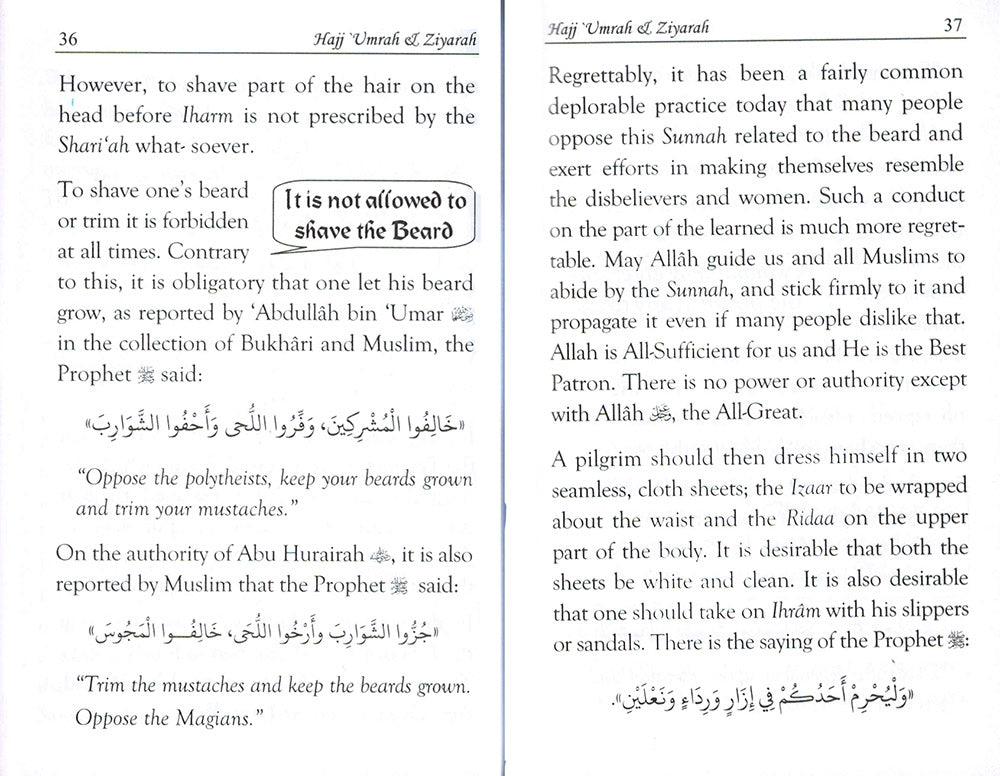 36
Hajj `Umrah & Ziyarah
However, to shave part of the hair on the
head before Iharm is not prescribed by the
Shari‘ah what- soever.
To shave one’s beard
or trim it is forbidden
at all times. Contrary
It is not allowed to
shave the Beard
to this, it is obligatory that one let his beard
grow, as reported by ‘Abdullâh bin ‘Umar
in the collection of Bukhâri and Muslim, the
Prophet ﷺ said:
«خَالِفُوا الْمُشْرِكِينَ، وَفِّرُوا اللُّحَى وَأَحْفُوا الشَّوَارِبَ»
“Oppose the polytheists, keep your beards grown
and trim your mustaches.”
On the authority of Abu Hurairah , it is also
reported by Muslim that the Prophet ﷺ said:
«جُزُّوا الشَّوَارِبَ وأَرْخُوا اللُّحَى، خَالِفُـــوا الْمَجُوسَ»
“Trim the mustaches and keep the beards grown.
Oppose the Magians.”
Hajj `Umrah & Ziyarah
37
Regrettably, it has been a fairly common
deplorable practice today that many people
oppose this Sunnah related to the beard and
exert efforts in making themselves resemble
the disbelievers and women. Such a conduct
on the part of the learned is much more regret-
table. May Allâh guide us and all Muslims to
abide by the Sunnah, and stick firmly to it and
propagate it even if many people dislike that.
Allah is All-Sufficient for us and He is the Best
Patron. There is no power or authority except
with Allâh , the All-Great.
A pilgrim should then dress himself in two
seamless, cloth sheets; the Izaar to be wrapped
about the waist and the Ridaa on the upper
part of the body. It is desirable that both the
sheets be white and clean. It is also desirable
that one should take on Ihrâm with his slippers
or sandals. There is the saying of the Prophet ﷺ:
«وَلْيُحْرِمْ أَحَدُكُمْ فِي إِزَارٍ وَرِدَاءٍ وَنَعْلَيْنِ».